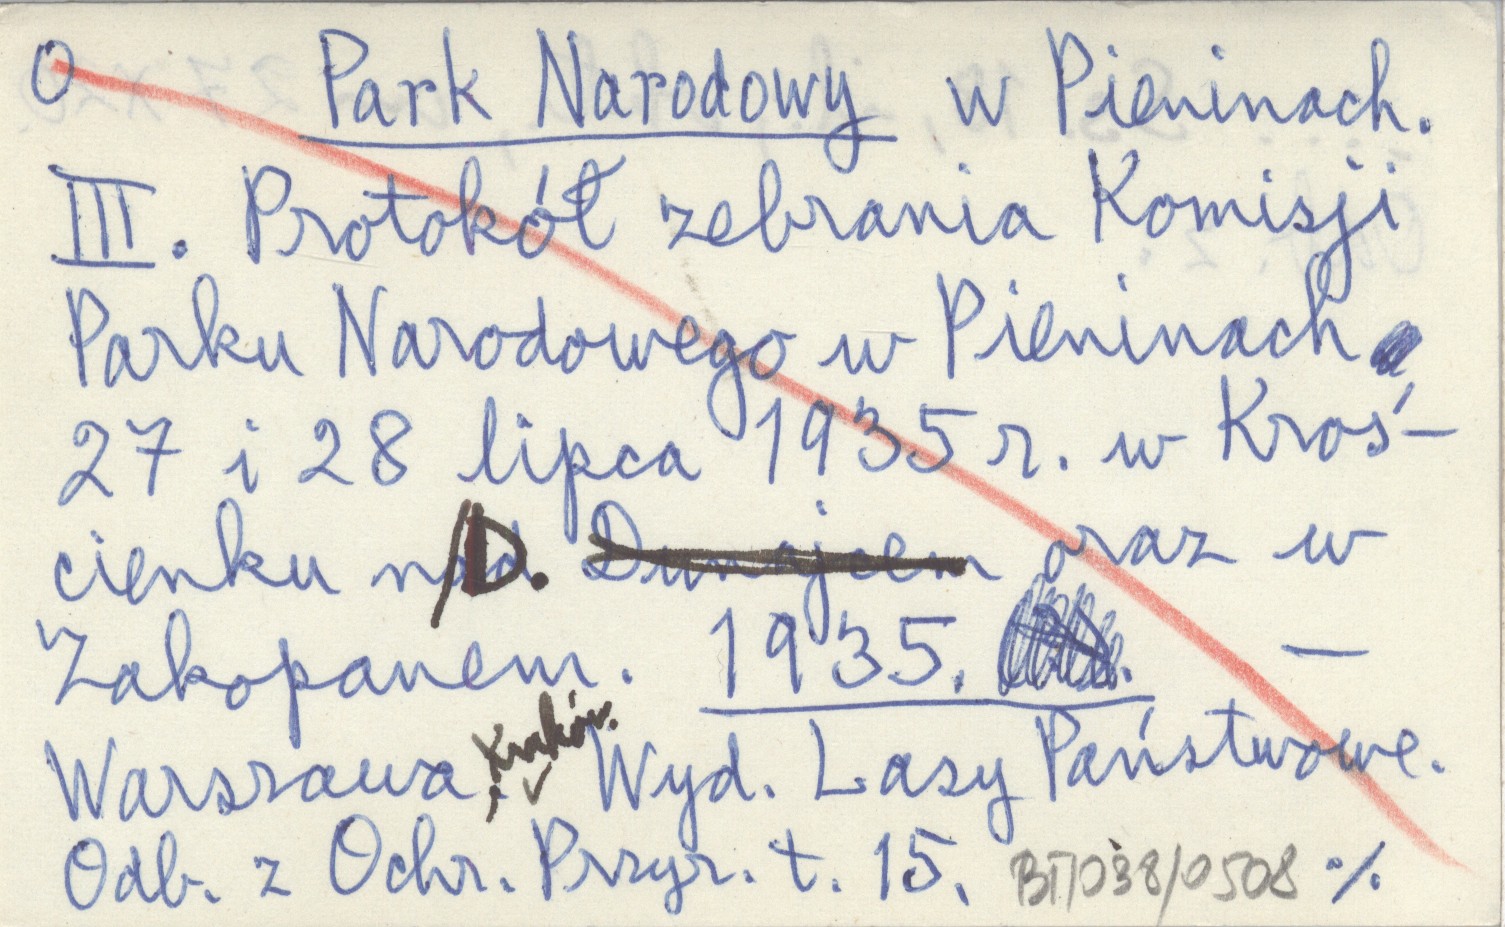 O Park Narodowy w Pieninach.
III. Protokół zebrania Komisji
Parku Narodowego w Pieninach
27 i 28 lipca 1935 r. w Kroś-
cienku nad D. Dunajcem oraz w
Zakopanem. 1935. —
Warszawa, Kraków. Wyd. Lasy Państwowe.
Odb. z Ochr. Przyr. t. 15. BT/038/0508 ./.